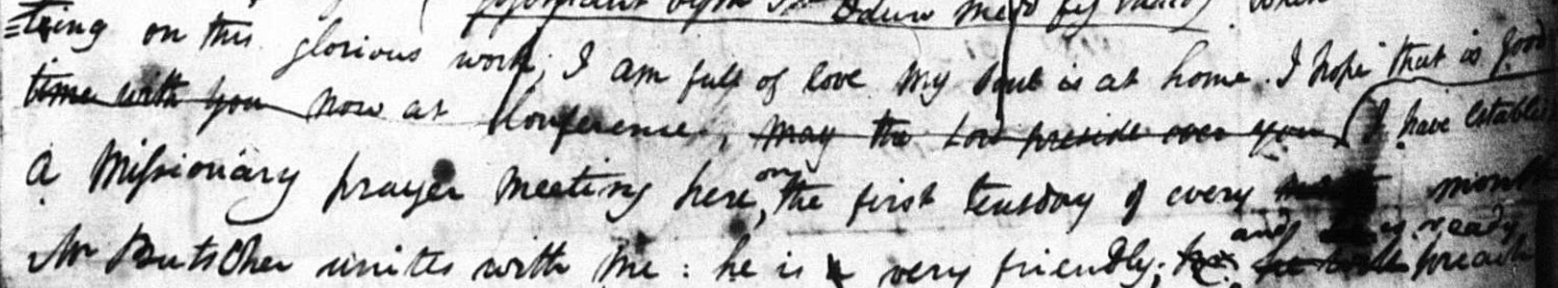 =tring on this glorious work, I am full of love my soul is at home. I hope that is good
time with you now at Conference, may the Lord preside over you I have establis
A Missionary prayer meeting here, on the first tuesday of every month
and is ready
Mr Butscher unites with me : he is very friendly; preach